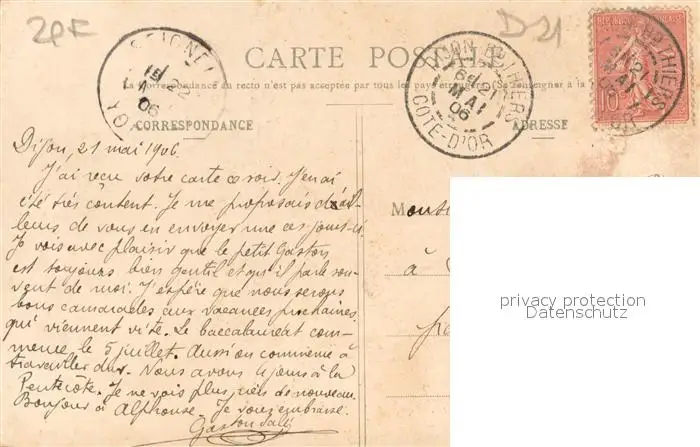 2PF
D21
CARTE POSTALE
La correspondance au recto n'est pas acceptée par tous les pays étrangers (Se renseigner à la
CORRESPONDANCE
ADRESSE
22
06
DIJON Bd THIERS
6E 21
MAI
06
COTE-D'OR
RÉPUBLIQUE FRANÇAISE
10
Dijon, 21 mai 1906.
J'ai reçu votre carte ce soir. J'en ai
été très content. Je me proposais d'ail-
leurs de vous en envoyer une ces jours-ci.
Je vois avec plaisir que le petit Gaston
est toujours bien gentil et qu'il parle sou-
vent de moi. J'espère que nous serons
bons camarades aux vacances prochaines
qui viennent vite. Le baccalauréat com-
mence le 5 juillet. Aussi on commence à
travailler dur. Nous avons 4 jours à la
Pentecôte. Je ne vois plus rien de nouveau.
Bonjour à Alphonse. Je vous embrasse.
Gaston
à
privacy protection
Datenschutz